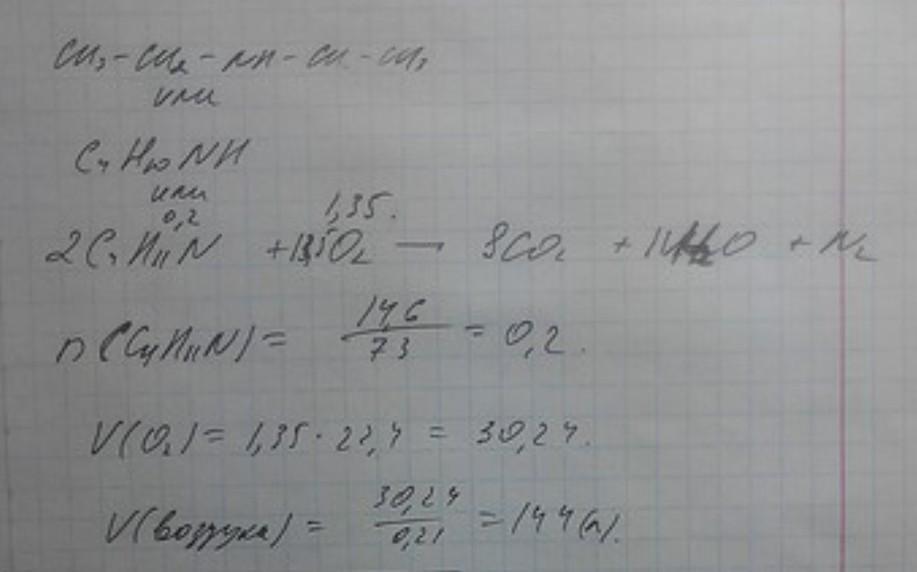 CH₃-CH₂-NH-CH-CH₃
или
C₄H₁₀NH
или
0,2 1,35.
2C₄H₁₁N + 13,5O₂ → 8CO₂ + 11H₂O + N₂
n(C₄H₁₁N) = 14,6/73 = 0,2.
V(O₂) = 1,35·22,4 = 30,24.
V(воздуха) = 30,24/0,21 = 144(л).